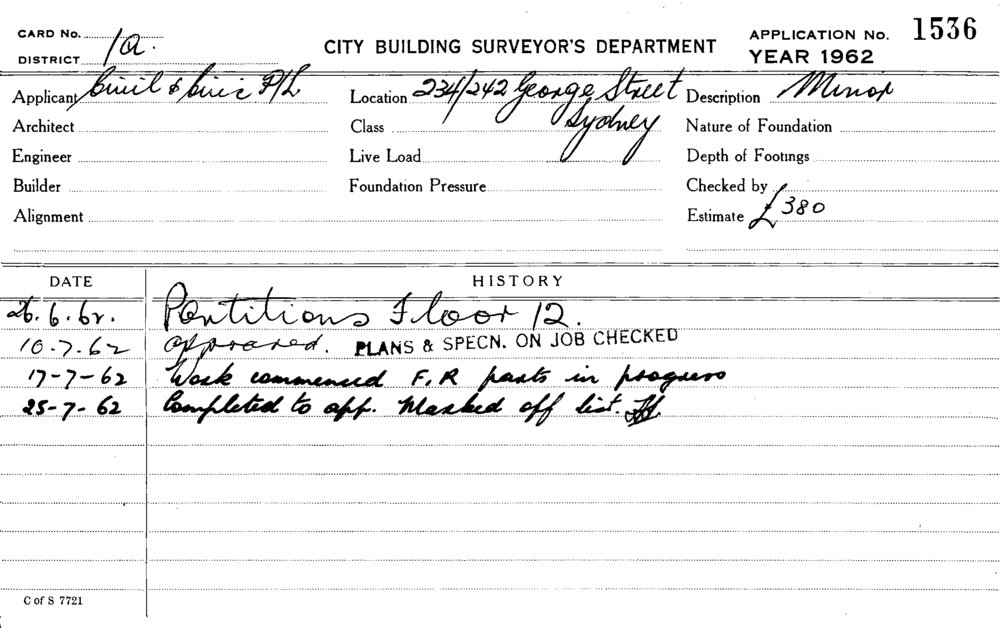 CARD No. 1a.
DISTRICT
CITY BUILDING SURVEYOR'S DEPARTMENT
APPLICATION No. 1536
YEAR 1962
Applicant Civil & Civic P/L
Location 234/242 George Street
Sydney
Description Minor
Architect
Class
Nature of Foundation
Engineer
Live Load
Depth of Footings
Builder
Foundation Pressure
Checked by
Alignment
Estimate £380
DATE HISTORY
26.6.62. Partitions Floor 12.
10.7.62 approved. PLANS & SPECN. ON JOB CHECKED
17-7-62 Work commenced F.R parts in progress
25-7-62 Completed to app. Marked off list.
C of S 7721